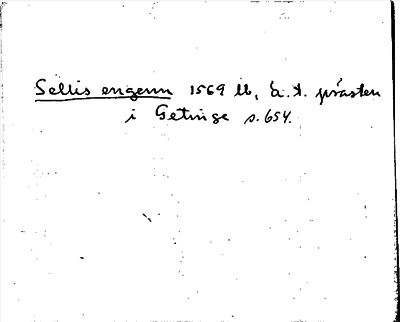 Sellis engenn 1569 lb, h. t. prästen
i Getinge s. 654.